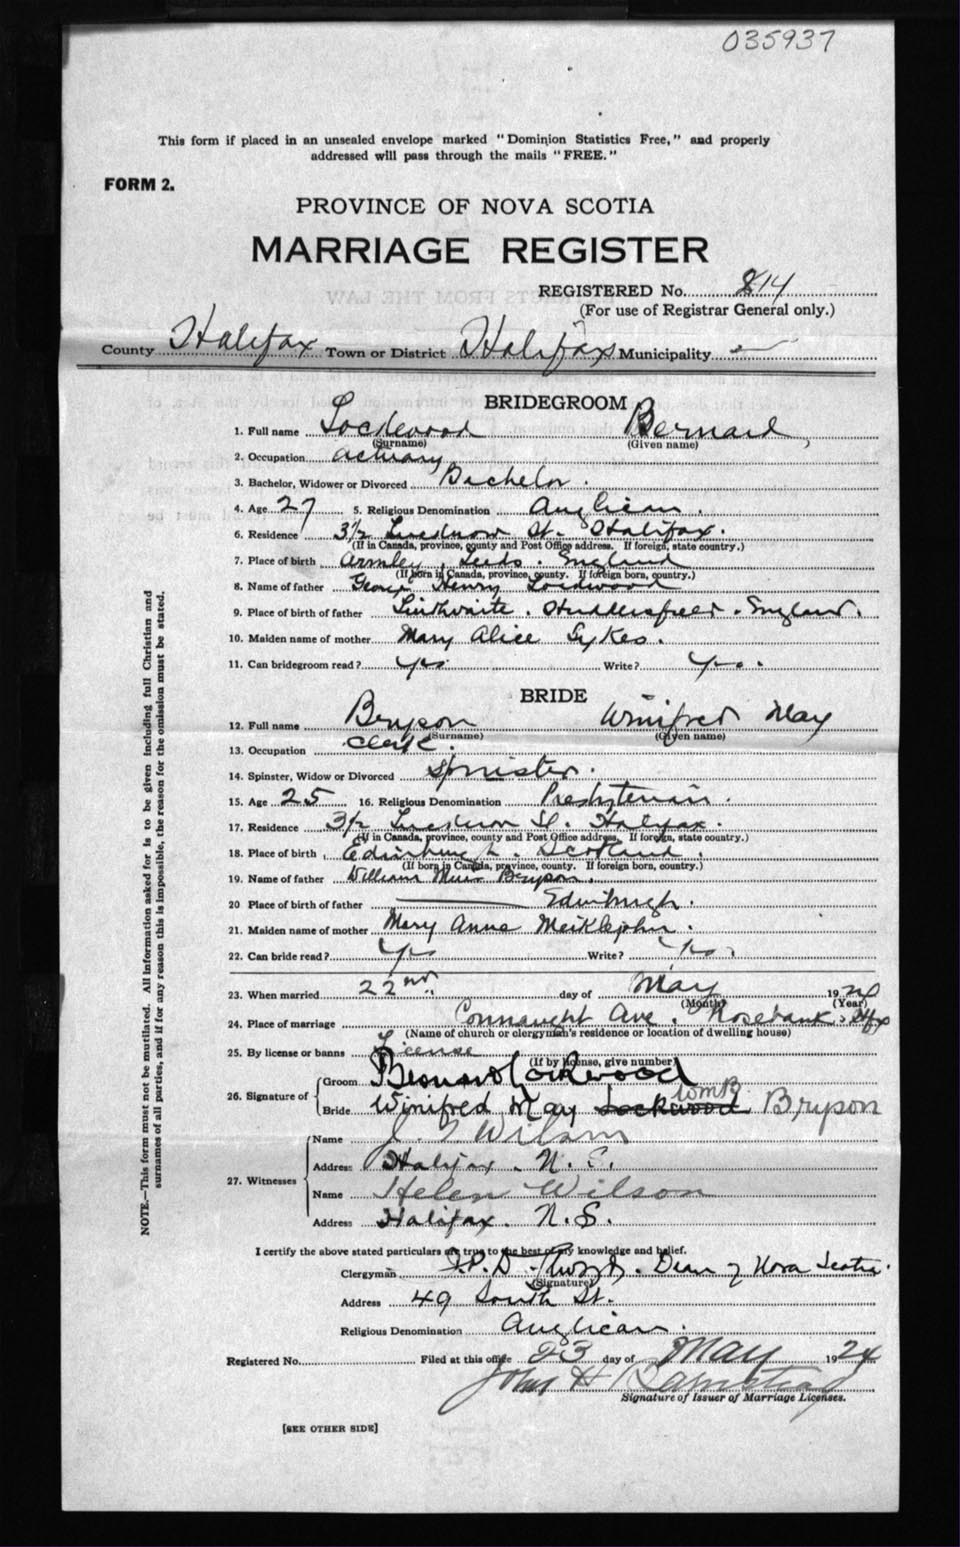 035937
This form if placed in an unsealed envelope marked "Dominion Statistics Free," and properly
addressed will pass through the mails "FREE."
FORM 2.
PROVINCE OF NOVA SCOTIA
MARRIAGE REGISTER
REGISTERED No. 814
(For use of Registrar General only.)
County Halifax Town or District Halifax Municipality —
BRIDEGROOM
1. Full name Lockwood Bernard,
(Surname) (Given name)
2. Occupation actuary
3. Bachelor, Widower or Divorced Bachelor.
4. Age 27 5. Religious Denomination Anglican.
6. Residence 31½ Lucknow St. Halifax.
(If in Canada, province, county and Post Office address. If foreign, state country.)
7. Place of birth Armley, Leeds. England
(If born in Canada, province, county. If foreign born, country.)
8. Name of father George Henry Lockwood
9. Place of birth of father Linthwaite. Huddersfield. England.
10. Maiden name of mother Mary Alice Sykes.
11. Can bridegroom read? yes Write? yes.
BRIDE
12. Full name Bryson Winifred May
(Surname) (Given name)
13. Occupation clerk.
14. Spinster, Widow or Divorced Spinster.
15. Age 25 16. Religious Denomination Presbyterian.
17. Residence Lucknow St. Halifax.
(If in Canada, province, county and Post Office address. If foreign, state country.)
18. Place of birth Edinburgh. Scotland.
(If born in Canada, province, county. If foreign born, country.)
19. Name of father William Muir Bryson.
20 Place of birth of father — Edinburgh.
21. Maiden name of mother Mary Anne Meiklejohn.
22. Can bride read? Yes Write? Yes.
23. When married 22nd day of May 1924
(Month) (Year)
24. Place of marriage Connaught Ave. Rosebank. Hfx
(Name of church or clergyman's residence or location of dwelling house)
25. By license or banns License
(If by license, give number)
26. Signature of
Groom Bernard Lockwood
WMB
Bride Winifred May Lockwood Bryson
27. Witnesses
Name J. Wilson
Address Halifax. N.S.
Name Helen Wilson
Address Halifax. N.S.
I certify the above stated particulars are true to the best of my knowledge and belief.
Clergyman Dean of Nova Scotia.
(Signature)
Address 49 South St.
Religious Denomination Anglican.
Registered No. Filed at this office 23 day of May 1924
John H Barnstead
Signature of Issuer of Marriage Licenses.
[SEE OTHER SIDE]
NOTE.—This form must not be mutilated. All information asked for is to be given including full Christian and
surnames of all parties, and if for any reason this is impossible, the reason for the omission must be stated.